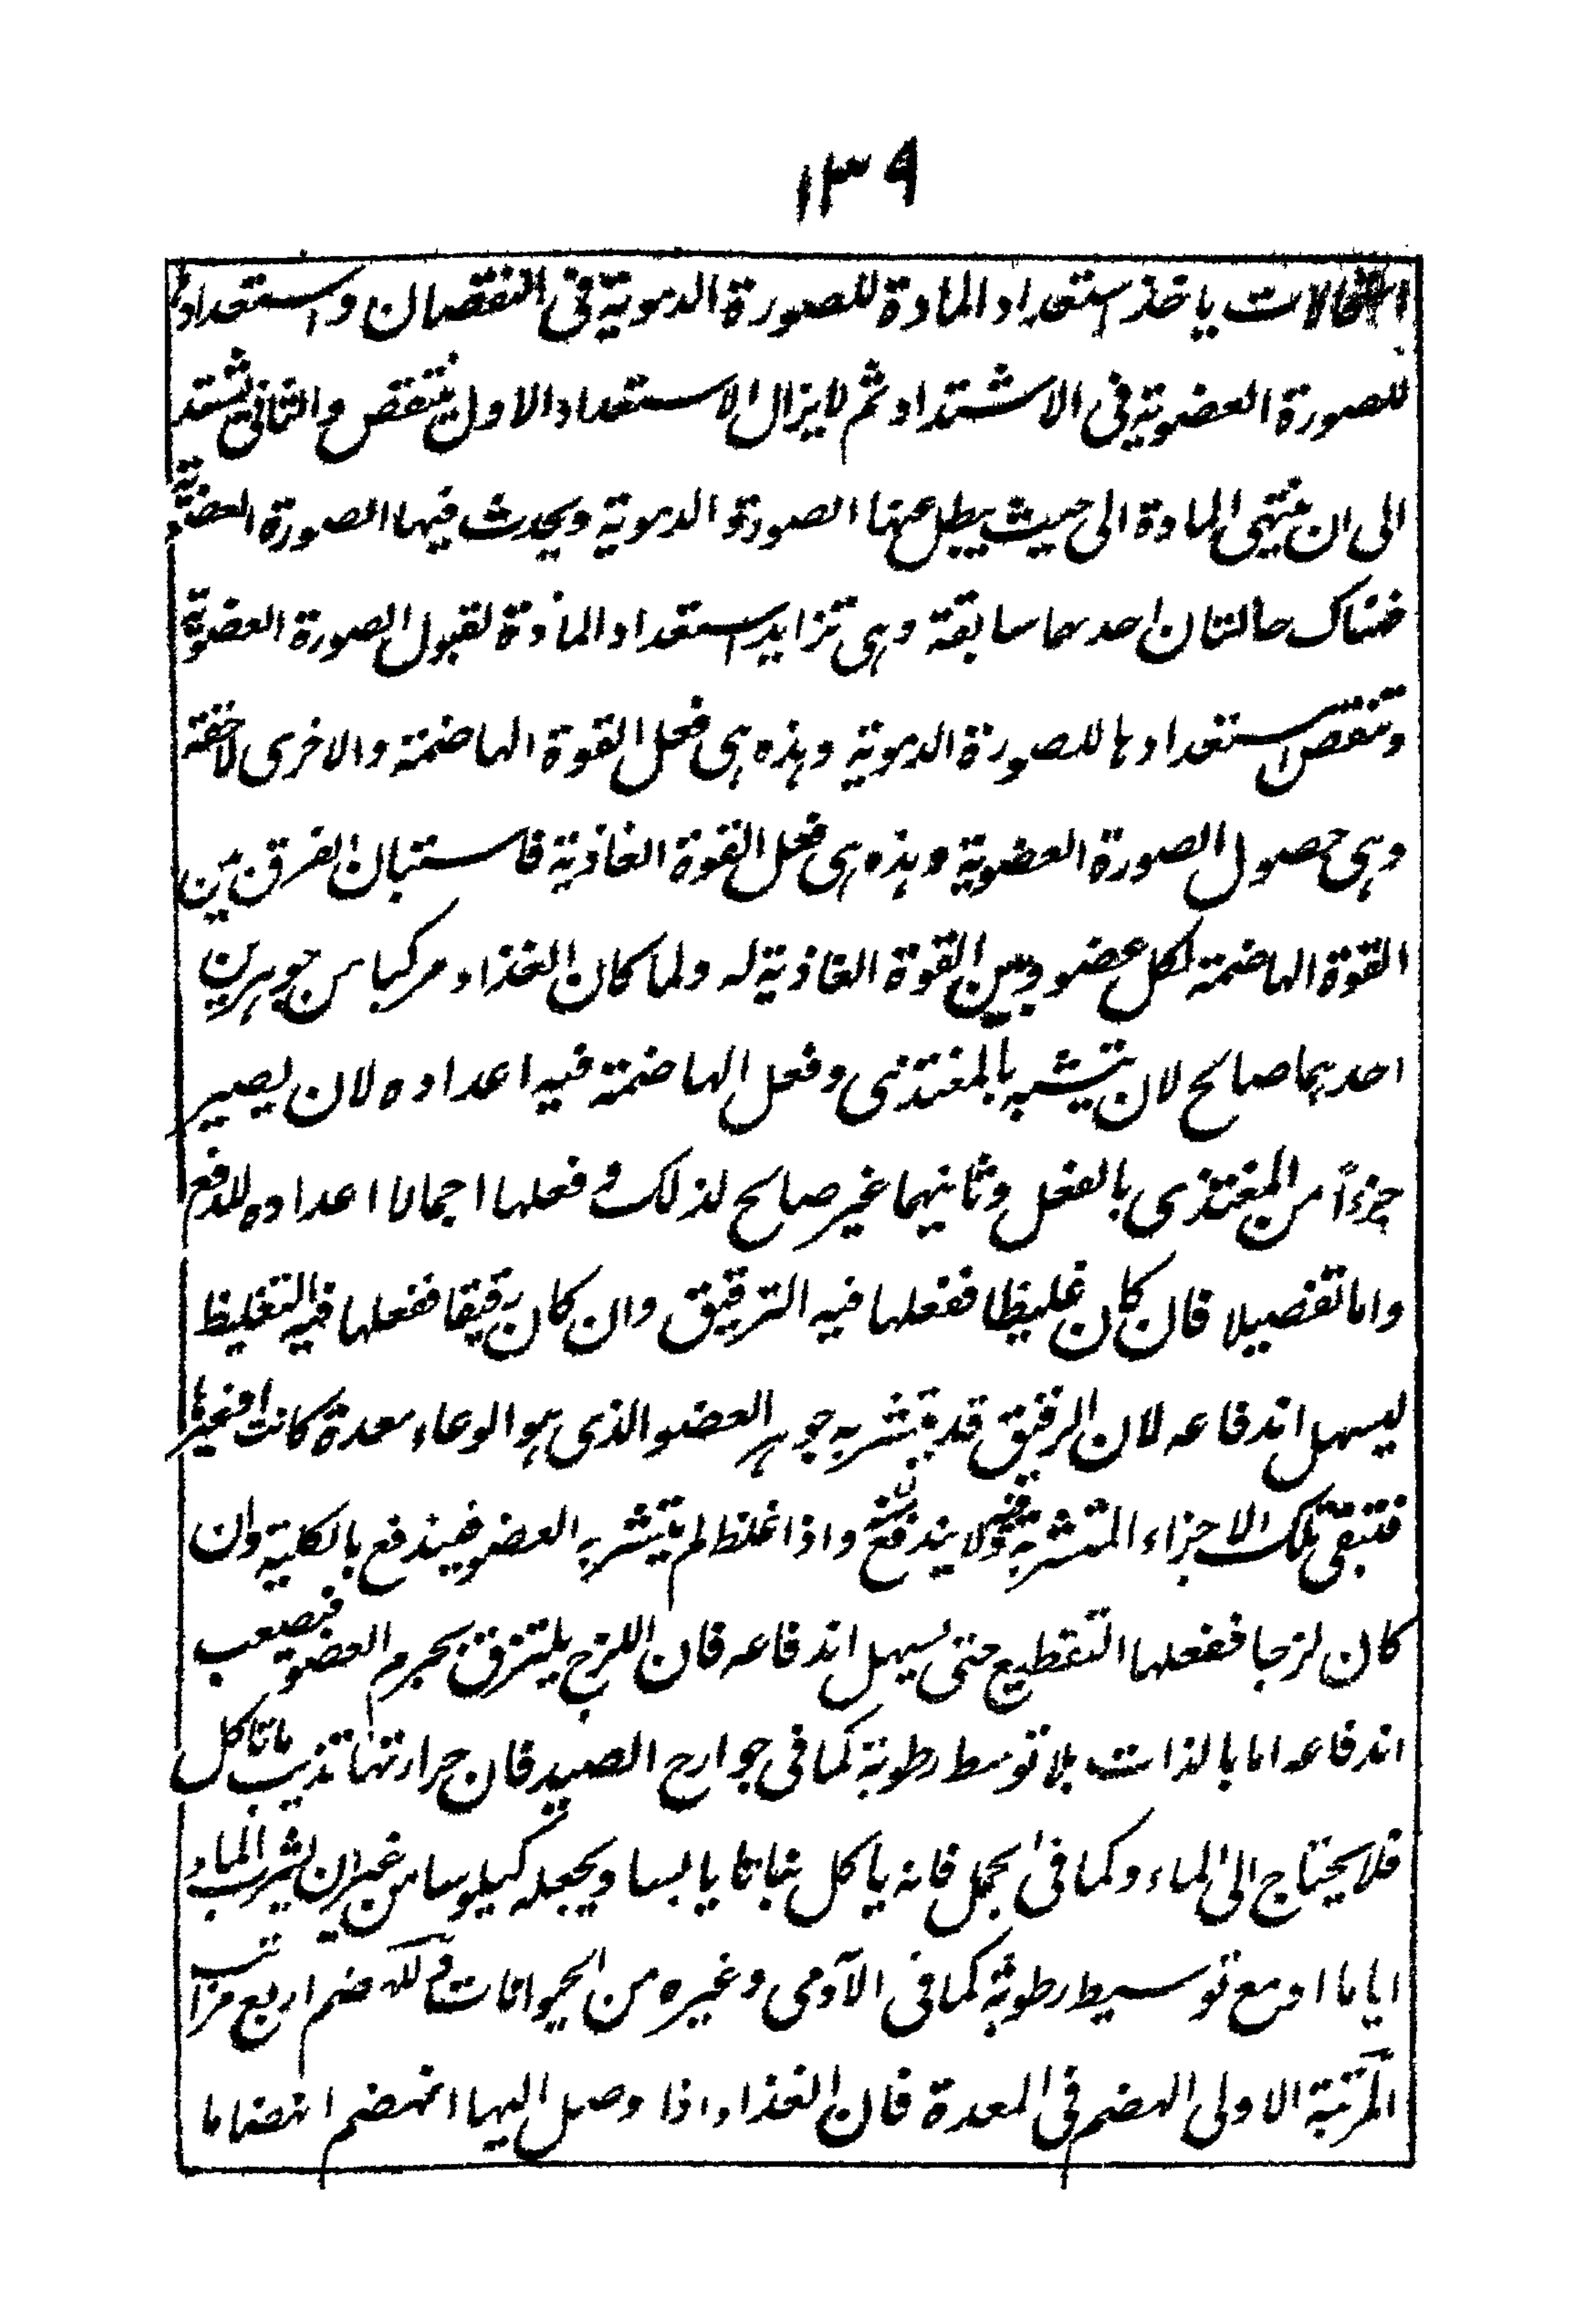 ١٣٩
استحالات ياخذ استعداد المادة للصورة الدموية فى النقصان واستعدادها
للصورة العضوية فى الاشتداد ثم لايزال الاستعداد الاول ينتقص والثانى يشتد
الى ان ينتهى المادة الى حيث يبطل عنها الصورة الدموية ويحدث فيها الصورة العضوية
فهناك حالتان احدهما سابقة وهى تزايد استعداد المادة لقبول الصورة العضوية
وتنقص استعدادها للصورة الدموية وهذه هى فعل القوة الهاضمة والاخرى لاحقة
وهى حصول الصورة العضوية وهذه هى فعل القوة الغاذية فاستبان الفرق بين
القوة الهاضمة لكل عضو وبين القوة الغاذية له ولما كان الغذاء مركبا من جوهرين
احدهما صالح لان يتشبه بالمغتذى وفعل الهاضمة فيه اعداده لان يصير
جزءاً من المغتذى بالفعل وثانيهما غير صالح لذلك وفعلها اجمالا اعداده للدفع
واما تفصيلا فان كان غليظا ففعلها فيه الترقيق وان كان رقيقا ففعلها فيه التغليظ
ليسهل اندفاعه لان الرقيق قد يتشربه جوهر العضو الذى هو الوعاء معدة كانت او غيرها
فتبقى تلك الاجزاء المتشربة فيه ولا يندفع واذا غلظ لم يتشربه العضو فيندفع بالكلية وان
كان لزجا ففعلها التقطيع حتى يسهل اندفاعه فان اللزج يلتزق بجرم العضو فيصعب
اندفاعه اما بالذات بلا توسط رطوبة كما فى جوارح الصيد فان حرارتها تذيب ماتاكل
فلا يحتاج الى الماء وكما فى الجمل فانه ياكل نباتا يابسا ويجعله كيلوسا من غير ان يشرب الماء
اياما او مع توسيط رطوبة كما فى الآدمى وغيره من الحيوانات وللهضم اربع مراتب
المرتبة الاولى الهضم فى المعدة فان الغذاء اذا وصل اليها انهضم انهضاما